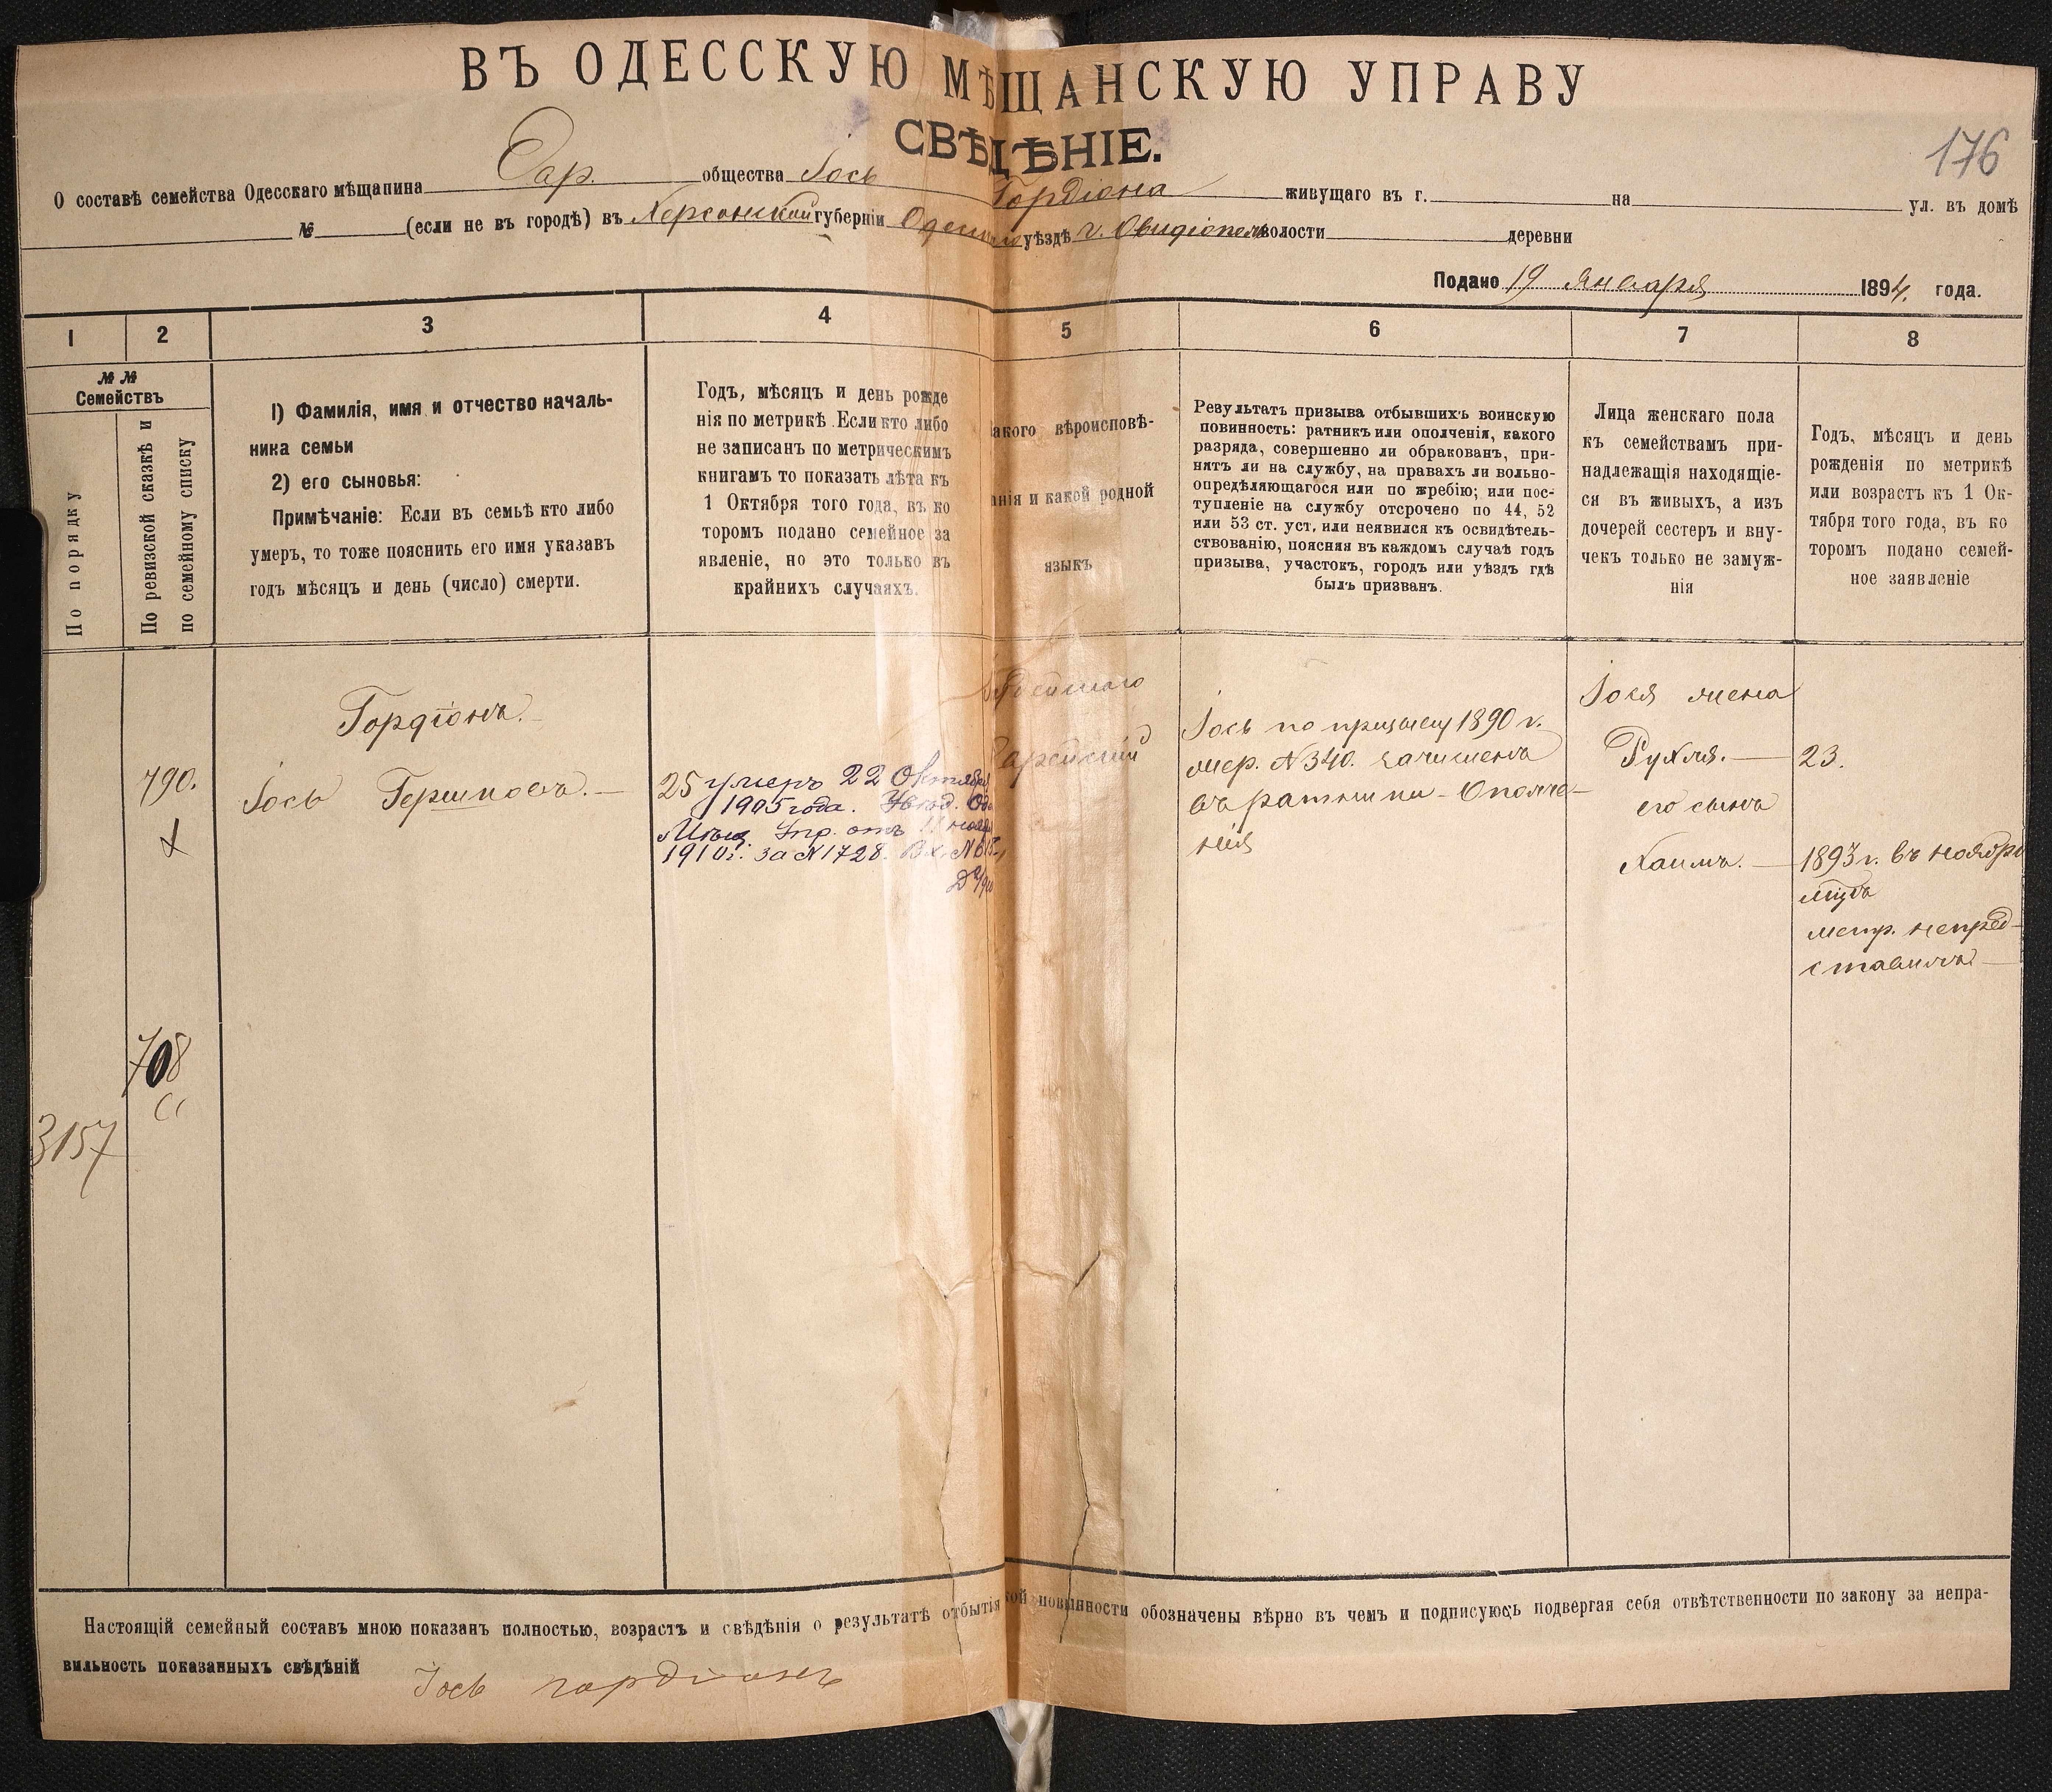 ВЪ ОДЕССКУЮ МѢЩАНСКУЮ УПРАВУ
СВѢДѢНІЕ.
176
О составѣ семейства Одесскаго мѣщанина общества Іось Гордіона живущаго въ г. на ул. въ домѣ
№ (если не въ городѣ) въ Херсонской губерніи Одесскаго уѣздѣ г. Овидіополь волости деревни
Подано 19 Января 1894. года.
1 2 3 4 5 6 7 8
№№
Семействъ
По порядку
По ревизской сказкѣ и
по семейному списку
1) Фамилія, имя и отчество началь-
ника семьи
2) его сыновья:
Примѣчаніе: Если въ семьѣ кто либо
умеръ, то тоже пояснить его имя указавъ
годъ мѣсяцъ и день (число) смерти.
Годъ, мѣсяцъ и день рожде
нія по метрикѣ. Если кто либо
не записанъ по метрическимъ
книгамъ то показать лѣта къ
1 Октября того года, въ ко
торомъ подано семейное за
явленіе, но это только въ
крайнихъ случаяхъ.
акого вѣроисповѣ-
анія и какой родной
языкъ
Результатъ призыва отбывшихъ воинскую
повинность: ратникъ или ополченія, какого
разряда, совершенно ли обракованъ, при-
нятъ ли на службу, на правахъ ли вольно-
опредѣляющагося или по жребію; или пос-
тупленіе на службу отсрочено по 44, 52
или 53 ст. уст. или неявился къ освидѣтель-
ствованію, поясняя въ каждомъ случаѣ годъ
призыва, участокъ, городъ или уѣздъ гдѣ
былъ призванъ.
Лица женскаго пола
къ семействамъ при-
надлежащія находящіе-
ся въ живыхъ, а изъ
дочерей сестеръ и вну-
чекъ только не замуж-
нія
Годъ, мѣсяцъ и день
рожденія по метрикѣ
или возрастъ къ 1 Ок-
тября того года, въ ко
торомъ подано семей-
ное заявленіе
790.
708
3157
Гордіонъ.
Іось Гершковъ.
25 умеръ 22 Октября
1905 года. Увѣд. Од.
Мѣщ. Упр. отъ 11 нояб
1910 г. за №1728.
Іось по призыву 1890 г.
жер. №340. зачисленъ
въ ратники - Ополче-
нія
Іося жена
Рухля. — 23.
его сынъ
Хаимъ. — 1893 г. въ ноябрѣ
мцѣ
метр. непред-
ставилъ
Настоящій семейный составъ мною показанъ полностью, возрастъ и свѣдѣнія о результатѣ отбытія ой повинности обозначены вѣрно въ чемъ и подписуюсь подвергая себя отвѣтственности по закону за непра-
вильность показанныхъ свѣдѣній
Іось гордіонъ